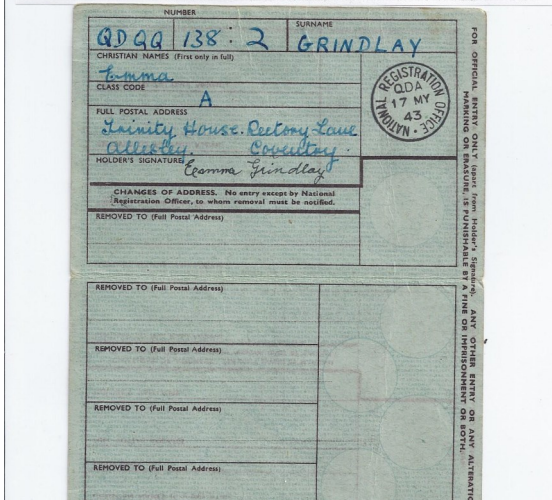 NUMBER
SURNAME
QDQQ 138 : 2 GRINDLAY
CHRISTIAN NAMES (First only in full)
Emma
CLASS CODE
A
FULL POSTAL ADDRESS
Trinity House. Rectory Lane
Allesley. Coventry.
HOLDER'S SIGNATURE Emma Grindlay
NATIONAL REGISTRATION OFFICE
QDA
17 MY
43
CHANGES OF ADDRESS. No entry except by National
Registration Officer, to whom removal must be notified.
REMOVED TO (Full Postal Address)
REMOVED TO (Full Postal Address)
REMOVED TO (Full Postal Address)
REMOVED TO (Full Postal Address)
REMOVED TO (Full Postal Address)
FOR OFFICIAL ENTRY ONLY (apart from Holder's Signature). ANY OTHER ENTRY OR ANY ALTERATIO
MARKING OR ERASURE, IS PUNISHABLE BY A FINE OR IMPRISONMENT OR BOTH.